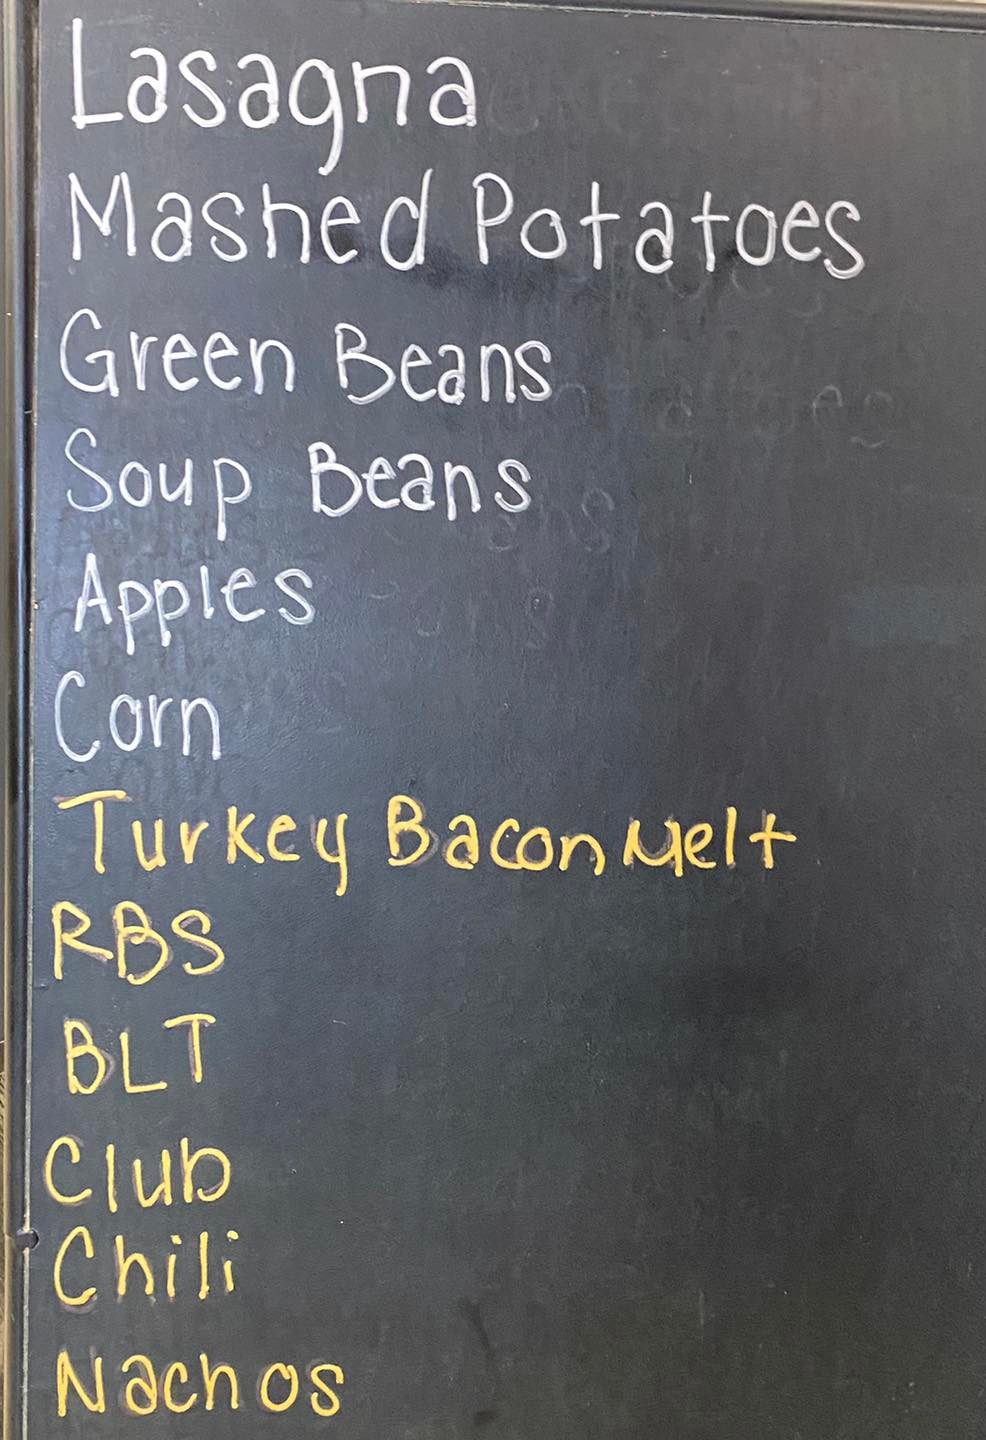 Lasagna
Mashed Potatoes
Green Beans
Soup Beans
Apples
Corn
Turkey Bacon Melt
RBS
BLT
Club
Chili
Nachos